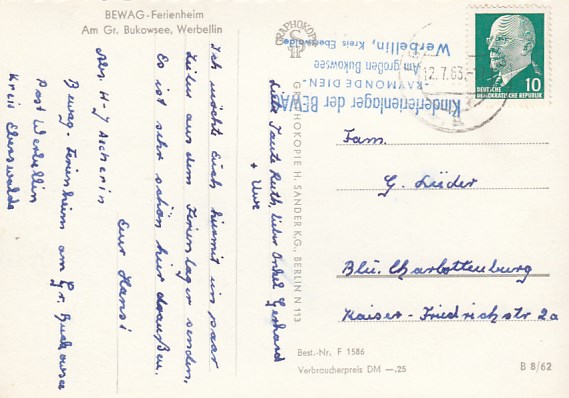 BEWAG-Ferienheim
Am Gr. Bukowsee, Werbellin
Liebe Tante Ruth, lieber Onkel Gerhard
+ Uwe
Ich möcht Euch hiermit ein paar
Zeilen aus dem Ferienlager senden,
Es ist sehr schön hier draußen.
Euer Hansi
Abs. H-J Ascherin
Bewag-Ferienheim am Gr. Buckowsee
Post Werbellin
Kreis Eberswalde
GRAPHOKOPIE
GRAPHOKOPIE H. SANDER K.G., BERLIN N 113
Kinderferienlager der BEWAG
"RAYMONDE DIEN"
Am großen Bukowsee
Werbellin, Kreis Eberswalde
12.7.63.-
DEUTSCHE
DEMOKRATISCHE REPUBLIK
10
Fam.
G. Lüder
Bln. Charlottenburg
Kaiser-Friedrichstr 2a
Best.-Nr. F 1586
Verbraucherpreis DM —.25
B 8/62